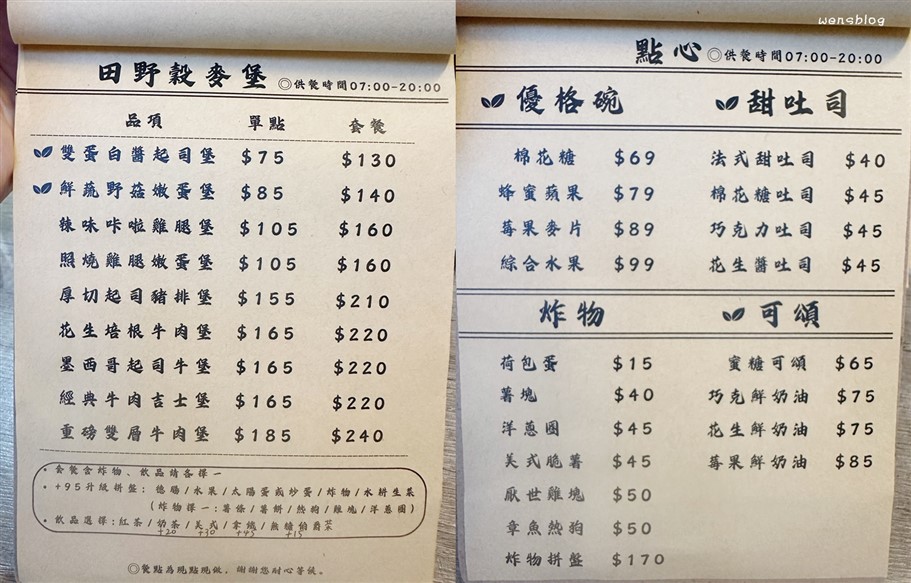 田野穀麥堡 ◎供餐時間07:00-20:00
品項 單點 套餐
雙蛋白醬起司堡 $75 $130
鮮蔬野菇嫩蛋堡 $85 $140
辣味咔啦雞腿堡 $105 $160
照燒雞腿嫩蛋堡 $105 $160
厚切起司豬排堡 $155 $210
花生培根牛肉堡 $165 $220
墨西哥起司牛堡 $165 $220
經典牛肉吉士堡 $165 $220
重磅雙層牛肉堡 $185 $240
• 套餐含炸物、飲品請各擇一
• +95升級拼盤: 德腸/水果/太陽蛋或炒蛋/炸物/水耕生菜
(炸物擇一:薯條/薯餅/熱狗/雞塊/洋蔥圈)
• 飲品選擇:紅茶/奶茶/美式/拿鐵/無糖伯爵茶
+20 +30 +45 +15
◎餐點為現點現做,謝謝您耐心等候。
wensblog
點心 ◎供餐時間07:00-20:00
優格碗
棉花糖 $69
蜂蜜蘋果 $79
莓果麥片 $89
綜合水果 $99
甜吐司
法式甜吐司 $40
棉花糖吐司 $45
巧克力吐司 $45
花生醬吐司 $45
炸物
荷包蛋 $15
薯塊 $40
洋蔥圈 $45
美式脆薯 $45
厭世雞塊 $50
章魚熱狗 $50
炸物拼盤 $170
可頌
蜜糖可頌 $65
巧克鮮奶油 $75
花生鮮奶油 $75
莓果鮮奶油 $85